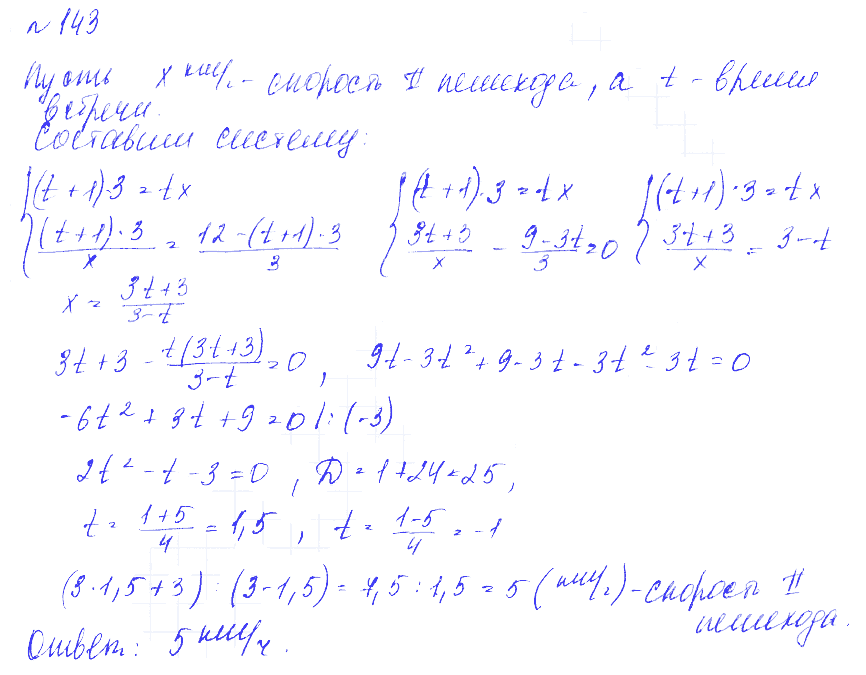 №143
Пусть x км/ч - скорость II пешехода, а t - время
встречи.
Составим систему:
{(t+1)·3=tx {(t+1)·3=tx {(t+1)·3=tx
{(t+1)·3/x = 12-(t+1)·3/3 {3t+3/x - 9-3t/3=0 {3t+3/x = 3-t
x = 3t+3/3-t
3t+3 - t(3t+3)/3-t = 0, 9t-3t²+9-3t-3t²-3t=0
-6t²+3t+9=0 |:(-3)
2t²-t-3=0, D=1+24=25,
t = 1+5/4 = 1,5, t = 1-5/4 = -1
(3·1,5+3):(3-1,5)=7,5:1,5=5(км/ч)-скорость II
пешехода.
Ответ: 5 км/ч.